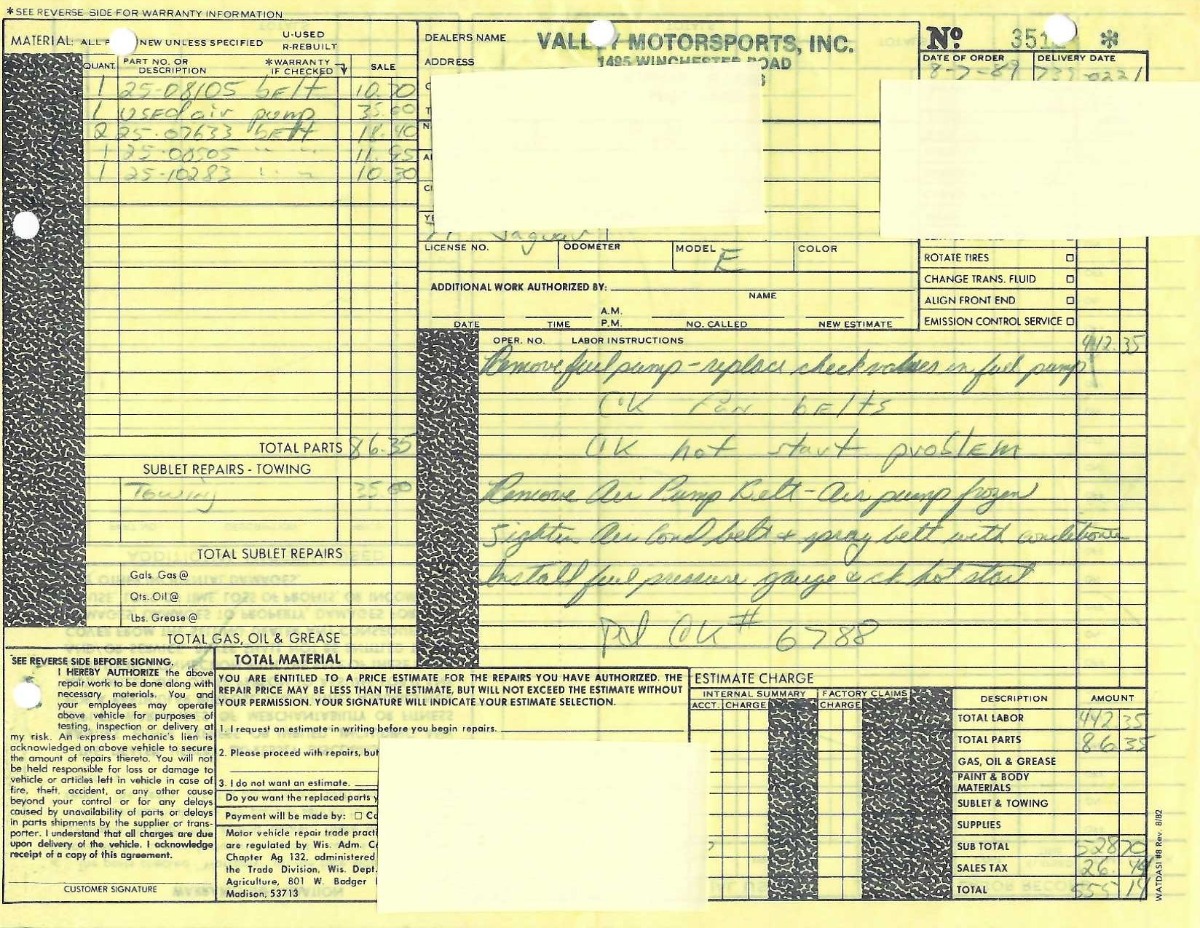 *SEE REVERSE SIDE FOR WARRANTY INFORMATION
MATERIAL: ALL NEW UNLESS SPECIFIED
U-USED
R-REBUILT
QUANT. PART NO. OR DESCRIPTION *WARRANTY IF CHECKED SALE
1 25-08105 belt 10.70
1 used air pump 35.00
2 25-07633 belt 18.40
1 25-00505 " " 11.95
1 25-10283 " " 10.30
TOTAL PARTS 86.35
SUBLET REPAIRS - TOWING
Towing 35.00
TOTAL SUBLET REPAIRS
Gals. Gas @
Qts. Oil @
Lbs. Grease @
TOTAL GAS, OIL & GREASE
TOTAL MATERIAL
SEE REVERSE SIDE BEFORE SIGNING.
I HEREBY AUTHORIZE the above
repair work to be done along with
necessary materials. You and
your employees may operate
above vehicle for purposes of
testing, inspection or delivery at
my risk. An express mechanic's lien is
acknowledged on above vehicle to secure
the amount of repairs thereto. You will not
be held responsible for loss or damage to
vehicle or articles left in vehicle in case of
fire, theft, accident, or any other cause
beyond your control or for any delays
caused by unavailability of parts or delays
in parts shipments by the supplier or trans-
porter. I understand that all charges are due
upon delivery of the vehicle. I acknowledge
receipt of a copy of this agreement.
CUSTOMER SIGNATURE
DEALERS NAME VALLEY MOTORSPORTS, INC.
ADDRESS 1495 WINCHESTER ROAD
Nº 351 *
DATE OF ORDER DELIVERY DATE
8-7-89 739-0221
Jaguar
LICENSE NO. ODOMETER MODEL E COLOR
ADDITIONAL WORK AUTHORIZED BY:
NAME
A.M.
DATE TIME P.M. NO. CALLED NEW ESTIMATE
ROTATE TIRES
CHANGE TRANS. FLUID
ALIGN FRONT END
EMISSION CONTROL SERVICE
OPER. NO. LABOR INSTRUCTIONS 442.35
Remove fuel pump - replace check valves in fuel pump
CK fan belts
CK hot start problem
Remove Air Pump Belt - Air pump frozen
Tighten Air Cond belt & spray belt with conditioner
Install fuel pressure gauge & ck hot start
Pd CK # 6788
YOU ARE ENTITLED TO A PRICE ESTIMATE FOR THE REPAIRS YOU HAVE AUTHORIZED. THE
REPAIR PRICE MAY BE LESS THAN THE ESTIMATE, BUT WILL NOT EXCEED THE ESTIMATE WITHOUT
YOUR PERMISSION. YOUR SIGNATURE WILL INDICATE YOUR ESTIMATE SELECTION.
1. I request an estimate in writing before you begin repairs.
2. Please proceed with repairs, but
3. I do not want an estimate.
Do you want the replaced parts
Payment will be made by:
Motor vehicle repair
are regulated by Wis. Adm.
Chapter Ag 132, administered
the Trade Division, Wis. Dept.
Agriculture, 801 W. Badger
Madison, 53713
ESTIMATE CHARGE
INTERNAL SUMMARY FACTORY CLAIMS
ACCT. CHARGE CHARGE
DESCRIPTION AMOUNT
TOTAL LABOR 442.35
TOTAL PARTS 86.35
GAS, OIL & GREASE
PAINT & BODY MATERIALS
SUBLET & TOWING
SUPPLIES
SUB TOTAL 528 70
SALES TAX 26.44
TOTAL 555 14
WATDASI #8 Rev. 8/82